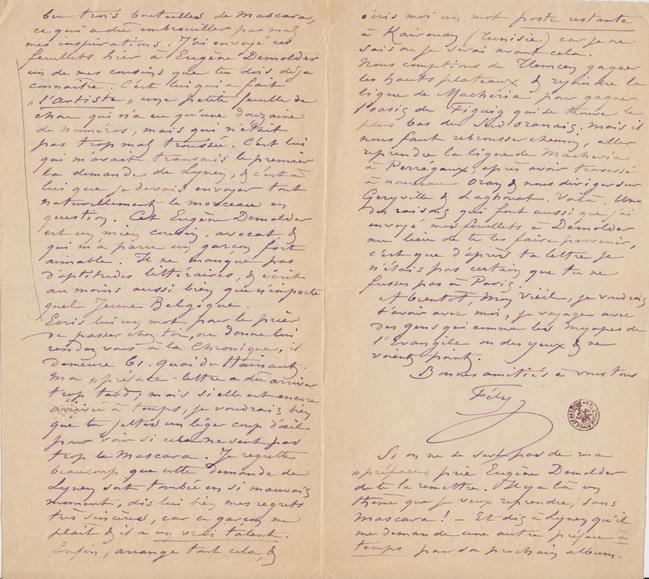 bu trois bouteilles de Mascara,
ce qui a dû embrouiller pas mal
mes inspirations. J'ai envoyé ces
feuillets hier à Eugène Demolder
un de mes cousins que tu dois déjà
connaître. C'est lui qui a fait
"l'Artiste" une petite feuille de
chou qui n'a eu qu'une douzaine
de numéros, mais qui n'était
pas trop mal troussée. C'est lui
qui m'avait transmis le premier
la demande de Lynen, & c'est à
lui que je devais envoyer tout
naturellement le morceau en
question. Cet Eugène Demolder
est un mien cousin, avocat &
qui m'a paru un garçon fort
aimable. Il ne manque pas
d'aptitudes littéraires, & écrit
au moins aussi bien que n'importe
quel Jeune Belgique.
Ecris lui un mot pour le prier
de passer chez toi, ou donne lui
rendez vous à la Chronique, il
demeure 61. Quai du Hainaut.
Ma "préface-lettre" a dû arriver
trop tard, mais si elle est encore
arrivée à temps, je voudrais bien
que tu jettes un léger coup d'œil
pour voir si cela ne sent pas
trop le Mascara. Je regrette
beaucoup que cette demande de
Lynen soit tombée en si mauvais
moment, dis lui bien mes regrets
très sincères, car ce garçon me
plait & il a un vrai talent.
Enfin, arrange tout cela, &
écris moi un mot poste restante
à Kairouan (Tunisie) car je ne
sais où je serai avant cela.
Nous comptions de Tlemcen gagner
les hauts plateaux & rejoindre la
ligne de Mécheria pour gagner
l'oasis de Figuig qui se trouve le
plus bas du Sud oranais. Mais il
nous faut rebrousser chemin, aller
reprendre la ligne de Mécheria
à Perrégaux, après avoir traversé
à nouveau Oran & nous diriger sur
Géryville & Laghouat. Voilà. Une
des raisons qui font aussi que j'ai
envoyé mes feuillets à Demolder
au lieu de te les faire parvenir,
c'est que d'après ta lettre je
n'étais pas certain que tu ne
fusses pas à Paris.
A bientôt mon vieil, je voudrais
t'avoir avec moi, je voyage avec
des gens qui comme les myopes de
l'Evangile ont des yeux & ne
voient point.
Bonnes amitiés à vous tous
Fély
Si on ne se sert pas de ma
"préface" prie Eugène Demolder
de te la remettre. Il y a là un
thème que je veux reprendre, sans
Mascara! – Et dis à Lynen qu'il
me demande une autre préface à
temps pour son prochain album.